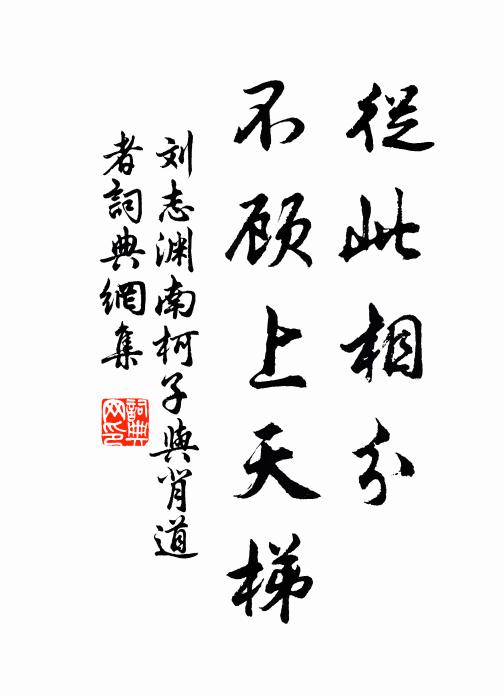 從此相分
不顾上天梯
刘志渊南柯子與肖道
者詞典網集
詞典
网印